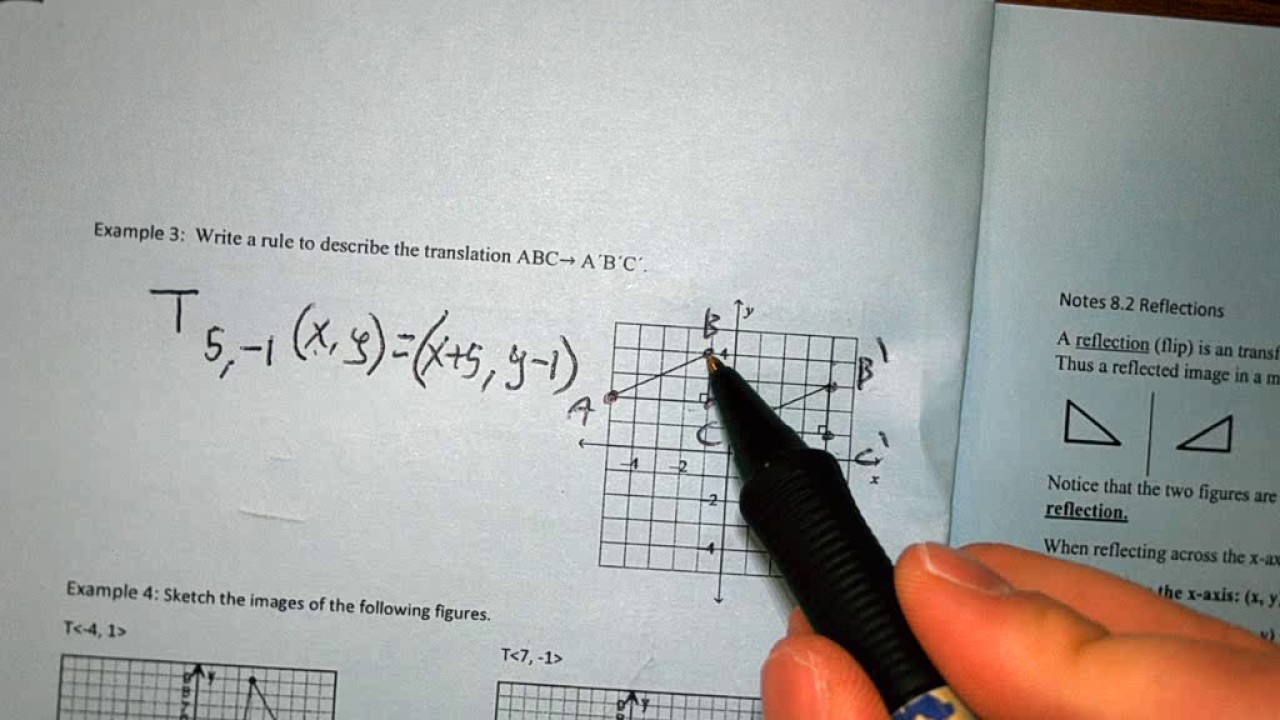 Example 3: Write a rule to describe the translation ABC→ A´B´C´.
T 5,-1 (x, y) = (x+5, y-1)
B
y
4
A
B'
C
C'
-4
-2
x
-2
-4
Example 4: Sketch the images of the following figures.
T<-4, 1>
y
T<7, -1>
y
Notes 8.2 Reflections
A reflection (flip) is an
Thus a reflected image in a
Notice that the two figures are
reflection.
When reflecting across the
the x-axis: (x, y